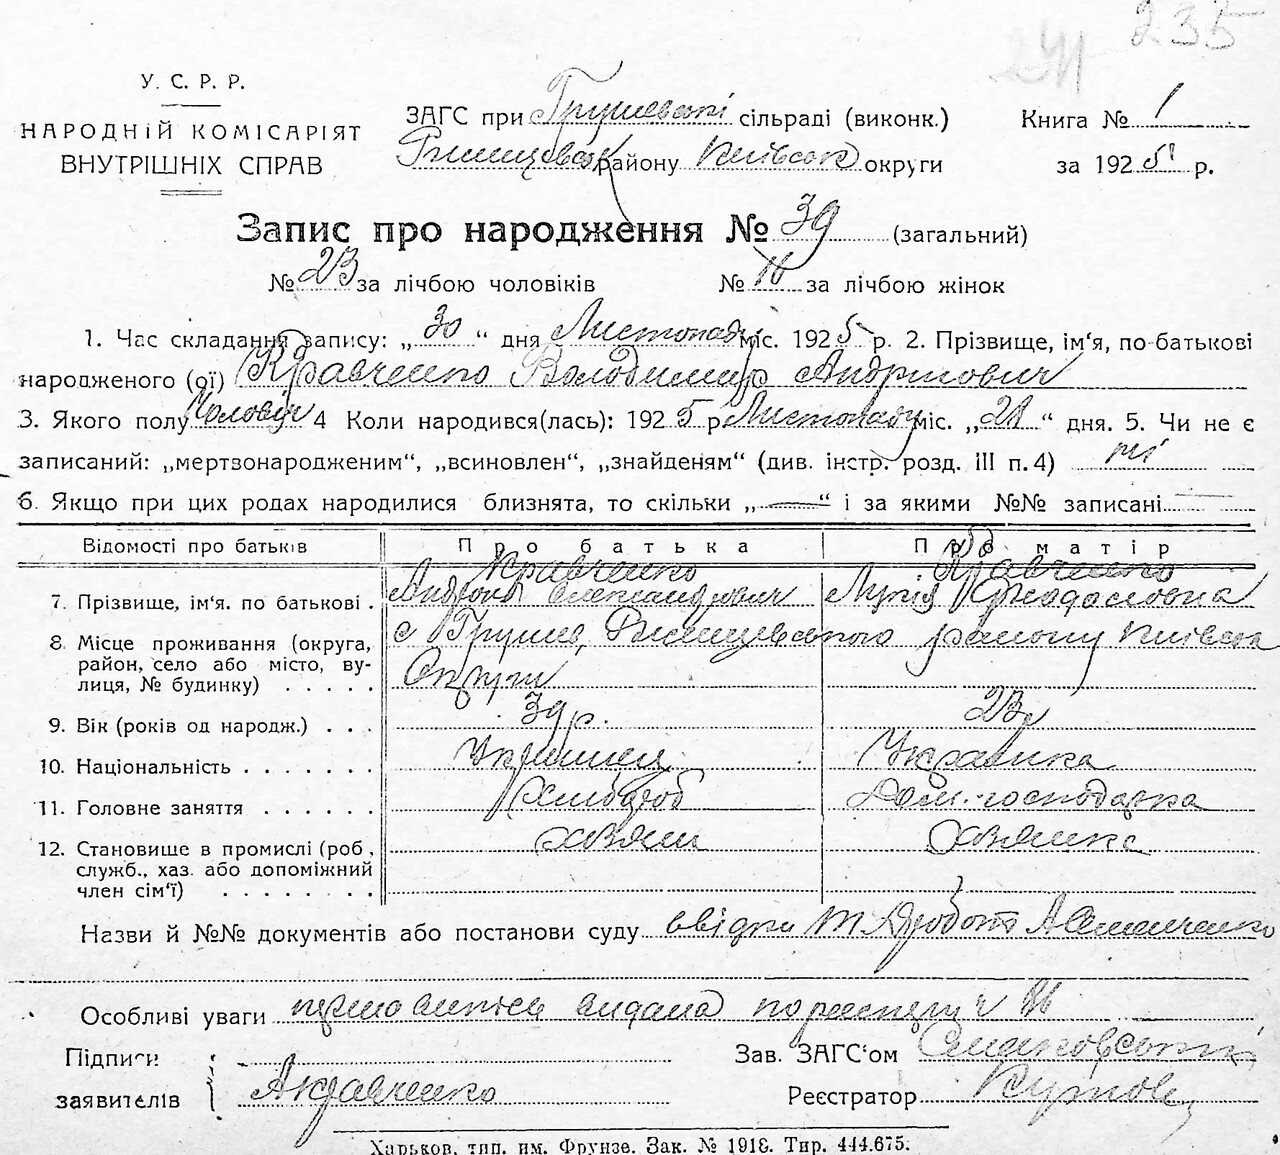 235
241
У. С. Р. Р.
НАРОДНІЙ КОМІСАРІЯТ
ВНУТРІШНІХ СПРАВ
ЗАГС при Грушевські сільраді (виконк.)
Ржищевськ району Київськ округи
Книга № 1
за 1925 р.
Запис про народження № 39 (загальний)
№ 23 за лічбою чоловіків № за лічбою жінок
1. Час складання запису: „30“ дня Листопаду міс. 1925 р. 2. Прізвище, ім‘я, по-батькові
народженого (ої) Кравченко Володимир Андрієвич
3. Якого полу Чолович 4 Коли народився(лась): 1925 р Листопаду міс. „21“ дня. 5. Чи не є
записаний: „мертвонародженим“, „всиновлен“, „знайденям“ (див. інстр. розд. III п. 4) ні
6. Якщо при цих родах народилися близнята, то скільки „—“ і за якими №№ записані
Відомості про батьків Про батька Про матір
Кравченко Кравченко
7. Прізвище, ім‘я. по батькові . Олександрович
8. Місце проживання (округа, с Грушів, Ржищевського району Київськ
район, село або місто, ву- Округи
лиця, № будинку) . . . . .
9. Вік (років од народж.) . . . 39 р. 23
10. Національність . . . . . . . Українець Українка
11. Головне заняття . . . . . . Хлібороб Дом.-господарка
12. Становище в промислі (роб., хазяїн хазяйка
служб., хаз. або допоміжний
член сім‘ї) . . . . . . . .
Назви й №№ документів або постанови суду
Особливі уваги видана
Підписи
заявителів А Кравченко
Зав. ЗАГС‘ом
Реєстратор
Харьков, тип. им. Фрунзе. Зак. № 1918. Тир. 444.675.